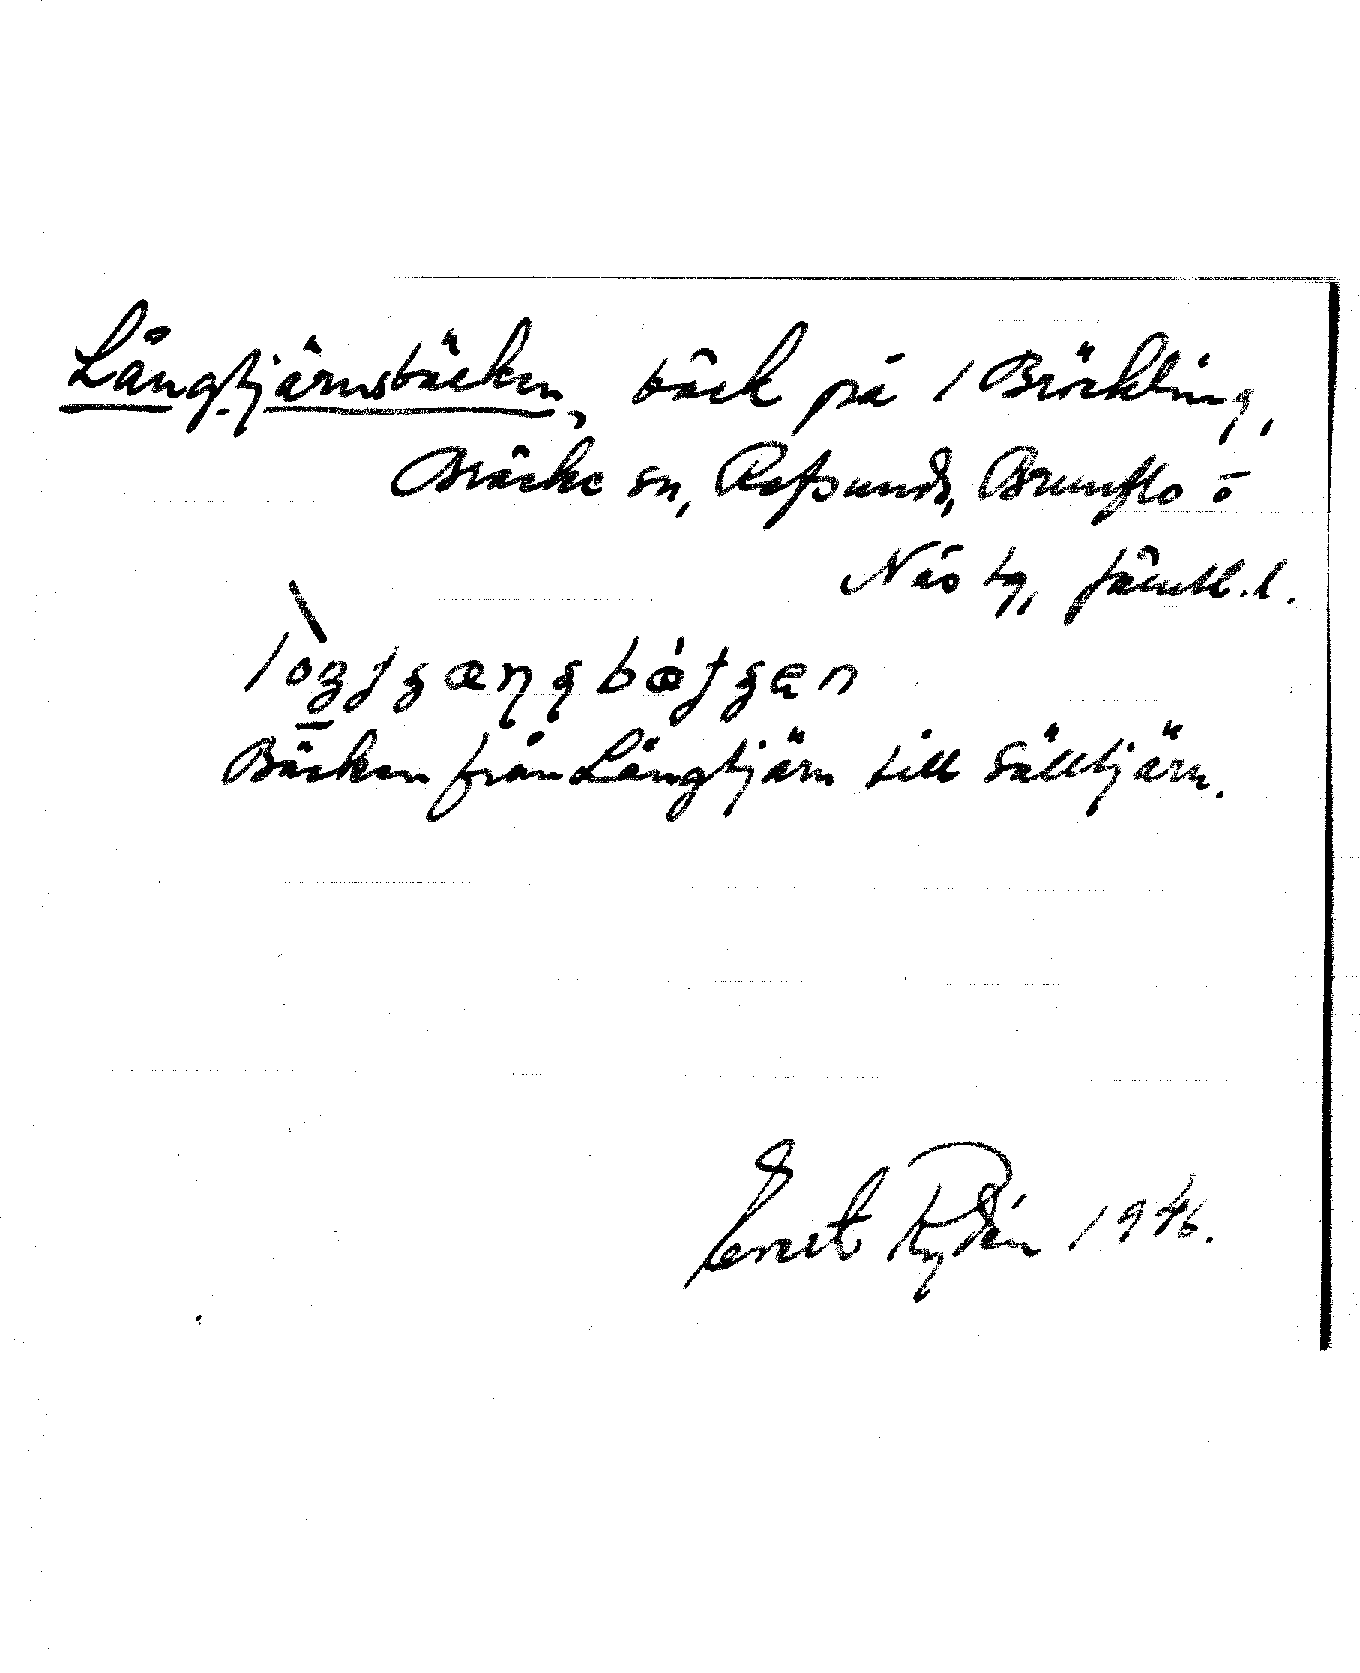 Långtjärnsbäcken, bäck på 1 Bräckling,
Bräcke sn, Refsunds, Brunflo o
Näs tg, Jämtl. l.
Bäcken från Långtjärn till Sälltjärn.
Ernst Rydén 1946.